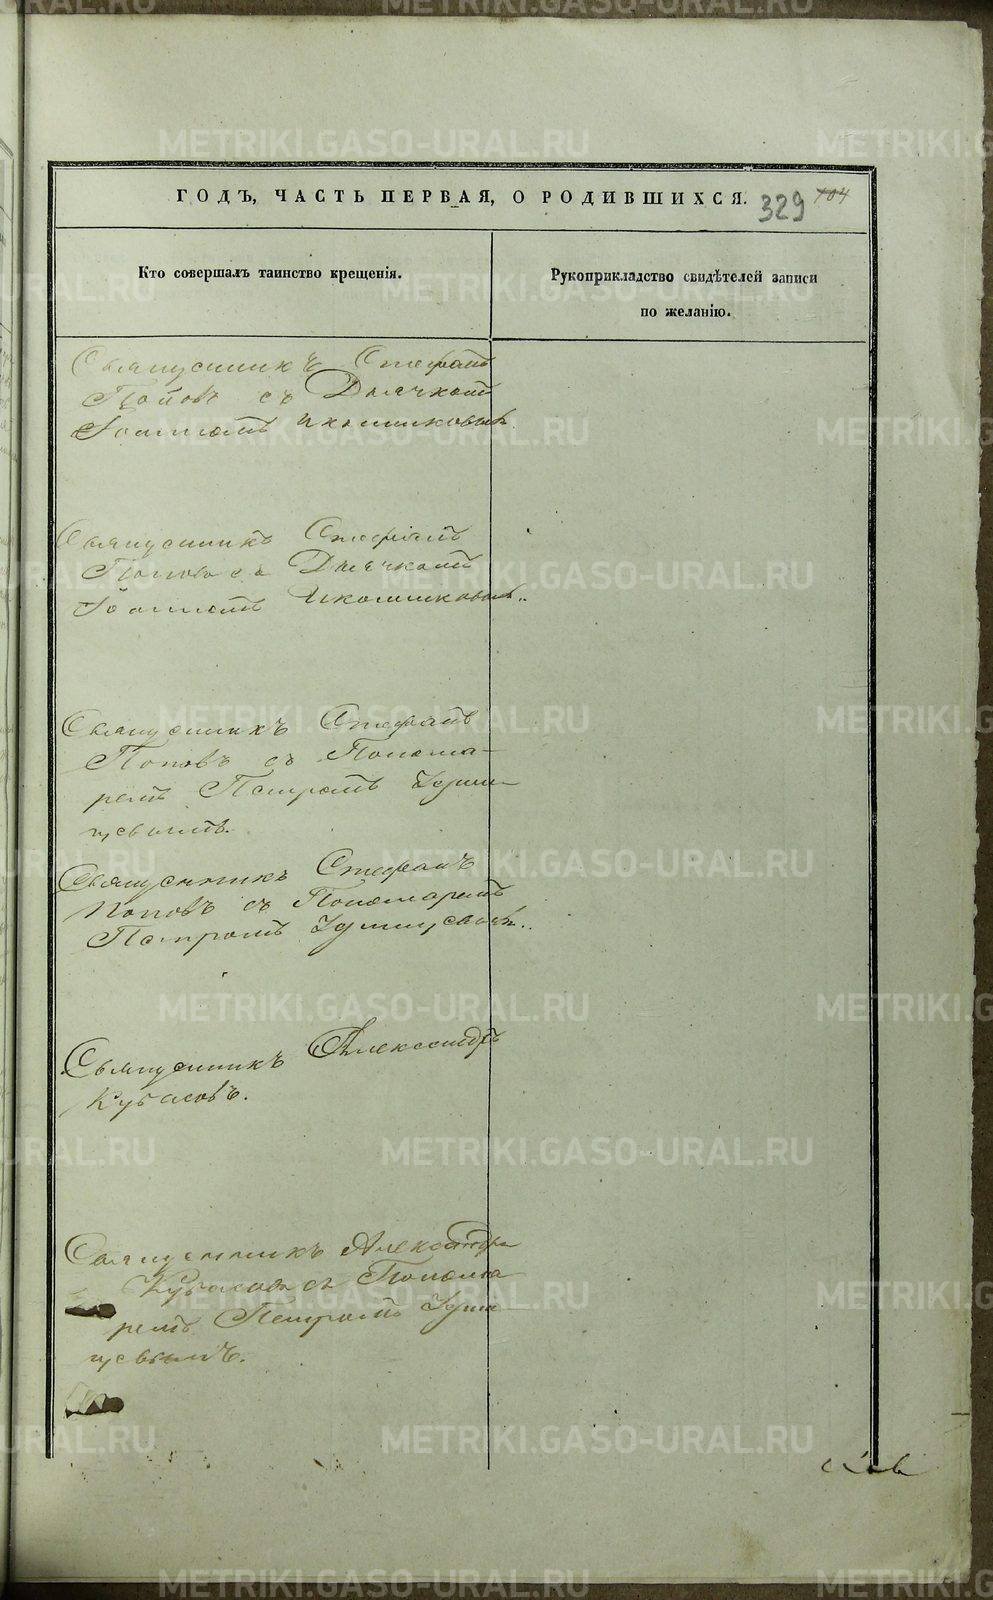 ГОДЪ, ЧАСТЬ ПЕРВАЯ, О РОДИВШИХСЯ. 329 104
Кто совершалъ таинство крещенія.
Рукоприкладство свидѣтелей записи
по желанію.
Священникъ Стефанъ
Поповъ съ Дьячкомъ
Іоанномъ Иконниковымъ.
Священникъ Стефанъ
Поповъ съ Дьячкомъ
Іоанномъ Иконниковымъ.
Священникъ Стефанъ
Поповъ съ Понома-
ремъ Петромъ
Священникъ Стефанъ
Поповъ съ Пономаремъ
Петромъ
Священникъ Александръ
Кубасовъ.
Священникъ Александръ
Кубасовъ съ Понома
ремъ Петромъ
METRIKI.GASO-URAL.RU